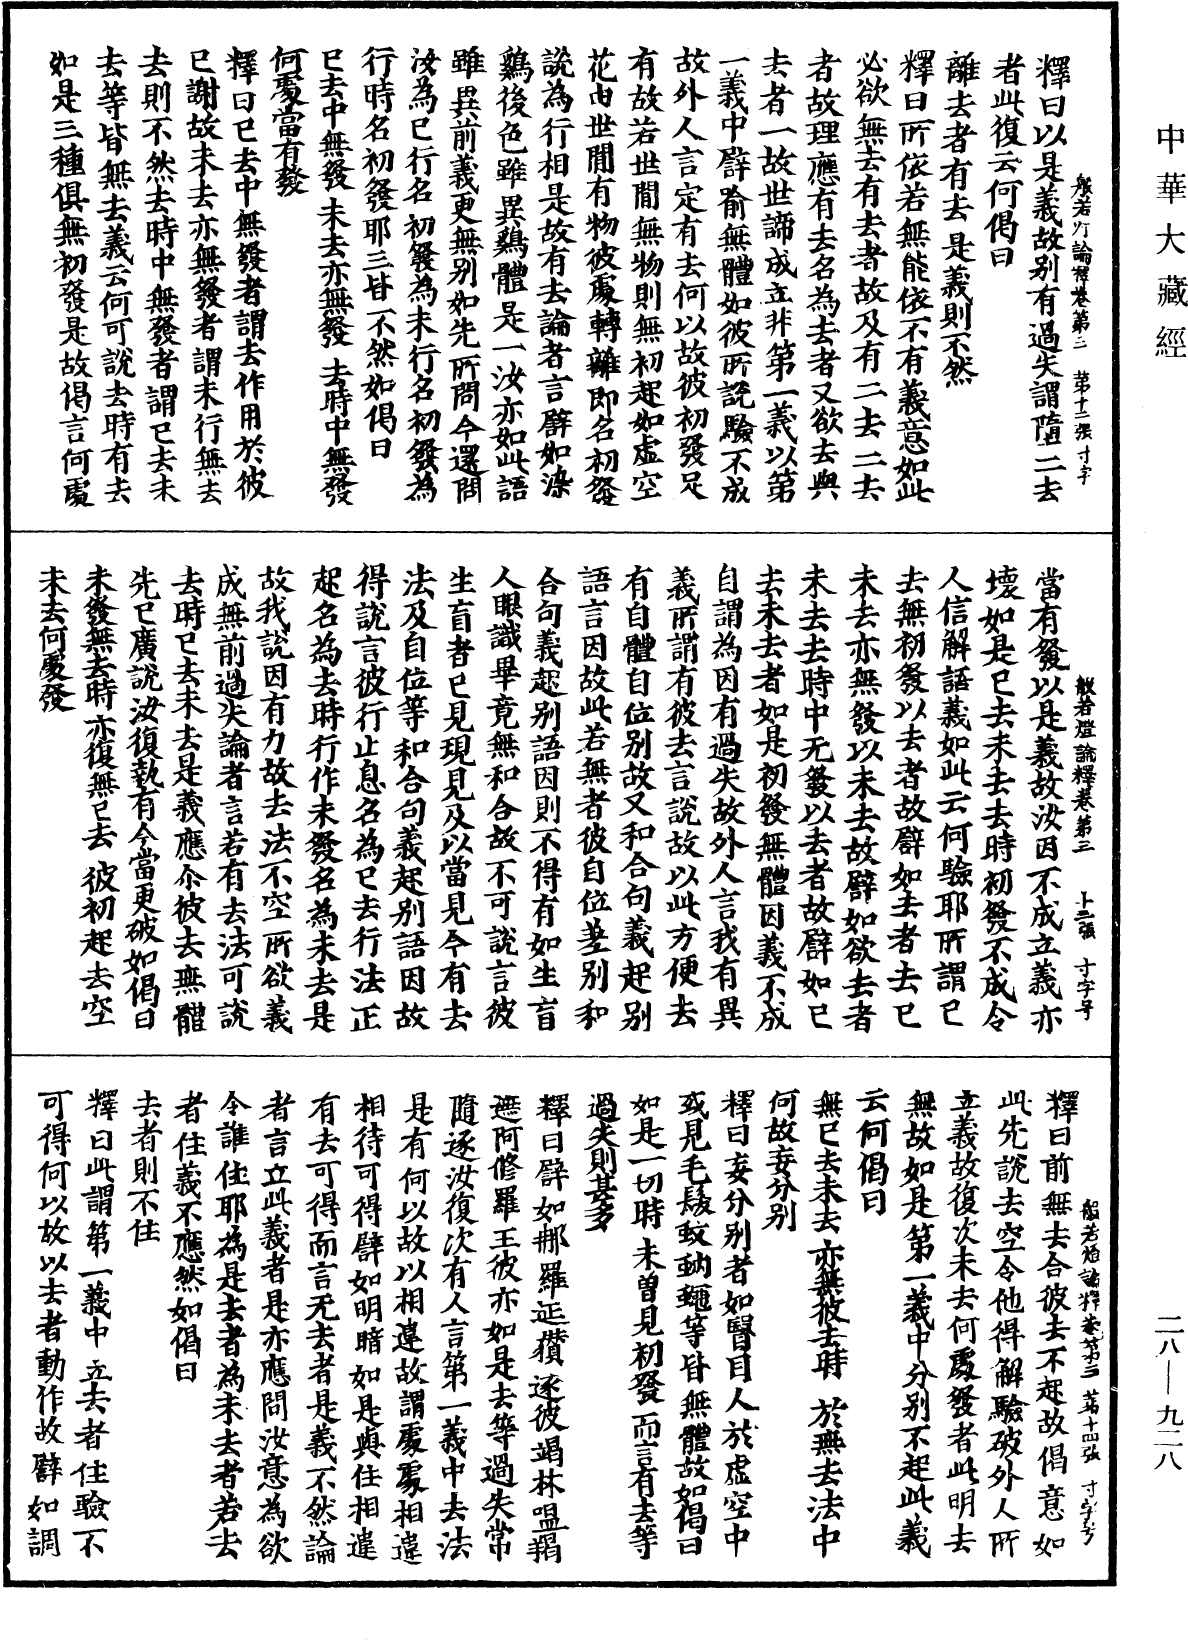 中華大藏經
二八—九二八
般若灯論釋卷第三 第十二張 寸字
釋曰以是義故別有過失謂墮二去
者此復云何偈曰
離去者有去 是義則不然
釋曰所依若無能依不有義意如此
必欲無去有去者故及有二去二去
者故理應有去名為去者又欲去與
去者一故世諦成立非第一義以第
一義中譬喻無體如彼所說驗不成
故外人言定有去何以故彼初發足
有故若世間無物則無初起如虛空
花由世間有物彼處轉離即名初發
說為行相是故有去論者言譬如染
鷄後色雖異鷄體是一汝亦如此語
雖異前義更無別如先所問今還問
汝為已行名初發為未行名初發為
行時名初發耶三皆不然如偈曰
已去中無發 未去亦無發 去時中無發
何處當有發
釋曰已去中無發者謂去作用於彼
已謝故未去亦無發者謂未行無去
去則不然去時中無發者謂已去未
去等皆無去義云何可說去時有去
如是三種俱無初發是故偈言何處
般若燈論釋卷第三 十三張 寸字号
當有發以是義故汝因不成立義亦
壞如是已去未去去時初發不成令
人信解語義如此云何驗耶所謂已
去無初發以去者故譬如去者去已
未去亦無發以未去故譬如欲去者
未去去時中无發以去者故譬如已
去未去者如是初發無體因義不成
自謂為因有過失故外人言我有異
義所謂有彼去言說故以此方便去
有自體自位別故又和合句義起別
語言因故此若無者彼自位差別和
合句義起別語因則不得有如生盲
人眼識畢竟無和合故不可說言彼
生盲者已見現見及以當見今有去
法及自位等和合句義起別語因故
得說言彼行止息名為已去行法正
起名為去時行作未發名為未去是
故我說因有力故去法不空所欲義
成無前過失論者言若有去法可說
去時已去未去是義應尒彼去無體
先已廣說汝復執有今當更破如偈曰
未發無去時 亦復無已去 彼初起去空
未去何處發
般若燈論釋卷第三 第十四張 寸字号
釋曰前無去合彼去不起故偈意如
此先說去空令他得解驗破外人所
立義故復次未去何處發者此明去
無故如是第一義中分別不起此義
云何偈曰
無已去未去 亦無彼去時 於無去法中
何故妄分別
釋曰妄分別者如瞖目人於虛空中
或見毛髮蚊蚋蠅等皆無體故如偈曰
如是一切時 未曾見初發 而言有去等
過失則甚多
釋曰譬如那羅延攢逐彼竭林嗢羯
遮阿修羅王彼亦如是去等過失常
隨逐汝復次有人言第一義中去法
是有何以故以相違故謂處處相違
相待可得譬如明暗如是與住相違
有去可得而言无去者是義不然論
者言立此義者是亦應問汝意為欲
令誰住耶為是去者為未去者若去
者住義不應然如偈曰
去者則不住
釋曰此謂第一義中立去者住驗不
可得何以故以去者動作故譬如調